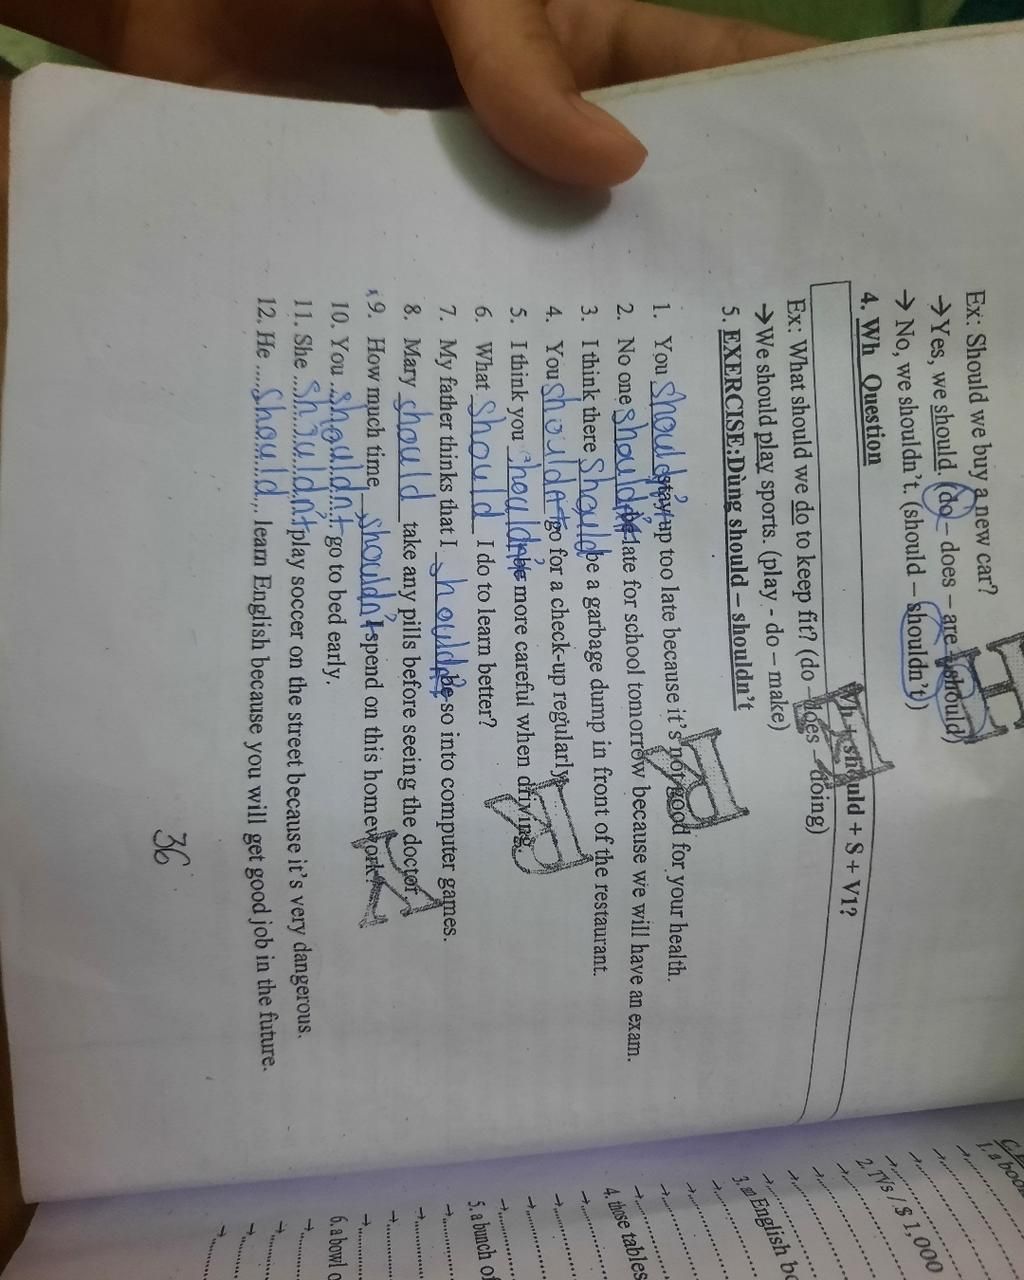 Ex: Should we buy a new car?
→ Yes, we should. (do – does – are – should)
→ No, we shouldn't. (should – shouldn't)
4. Wh_Question
Wh + should + S + V1?
Ex: What should we do to keep fit? (do – does – doing)
→ We should play sports. (play - do – make)
5. EXERCISE: Dùng should – shouldn't
1. You shouldn't stay up too late because it's not good for your health.
2. No one should be late for school tomorrow because we will have an exam.
3. I think there should be a garbage dump in front of the restaurant.
4. You shouldn't go for a check-up regularly.
5. I think you shouldn't be more careful when driving.
6. What should I do to learn better?
7. My father thinks that I shouldn't be so into computer games.
8. Mary should take any pills before seeing the doctor.
9. How much time shouldn't I spend on this homework?
10. You shouldn't go to bed early.
11. She shouldn't play soccer on the street because it's very dangerous.
12. He should learn English because you will get good job in the future.
36
1. a boo
→
→
→
2. TVs / $ 1,000
→
→
→
→
3. an English b
→
→
→
4. those tables
→
→
→
→
5. a bunch of
→
→
→
→
6. a bowl o
→
→
→
→